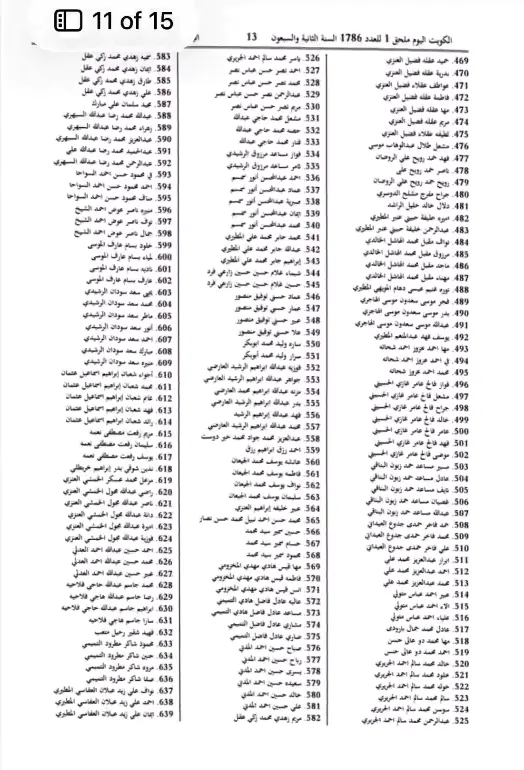 11 of 15
الكويت اليوم ملحق 1 للعدد 1786 السنة الثانية والسبعون 13
469. حميد عقله فضيل العنزي
470. بدرية عقله فضيل العنزي
471. عواطف عقلاء فضيل العنزي
472. فاطمة عقله فضيل العنزي
473. مها عقله فضيل العنزي
474. حمده عقله فضيل العنزي
475. لطيفه عقلاء فضيل العنزي
476. مشعل طلال عبدالوهاب موسى
477. فهد حمد رويح علي الروضان
478. ناصر حمد رويح علي
479. رويح حمد رويح علي الروضان
480. جراح مفرح مشلح الدوسري
481. دلال خالد خليل الراشد
482. اميره خليفة حبيني عنبر المطيري
483. عبدالرحمن خليفة حبيني عنبر المطيري
484. نواف مقبل محمد الهاشل الخالدي
485. مرزوق مقبل محمد الهاشل الخالدي
486. ماجد مقبل محمد الهاشل الخالدي
487. مهند مقبل محمد الهاشل الخالدي
488. نوره غنيم عيسى دهام المطيري
489. فجر موسى سعدون موسى الهاجري
490. بدر موسى سعدون موسى الهاجري
491. عبدالله موسى سعدون موسى الهاجري
492. يوسف فهد عبدالمنعم المطيري
493. مها احمد عزوز احمد شحاته
494. في احمد عزوز احمد شحاته
495. احمد عزوز احمد شحاته
496. فواز فالح عامر غازي الحسيني
497. مشعل فالح عامر غازي الحسيني
498. جراح فالح عامر غازي الحسيني
499. خالد فالح عامر غازي الحسيني
500. عامر فالح عامر غازي الحسيني
501. فهد فالح عامر غازي الحسيني
502. موضى فالح عامر غازي الحسيني
503. سمير مساعد حمد زبون الباقي
504. عادل مساعد حمد زبون الباقي
505. نايف مساعد حمد زبون الباقي
506. قضيان مساعد حمد زبون الباقي
507. عبدالله مساعد حمد زبون الباقي
508. حمد فاخر حمدي جدوع العبداني
509. محمد فاخر حمدي جدوع العبداني
510. علي فاخر حمدي جدوع العبداني
511. ابرار عبدالعزيز محمد علي
512. احمد عبدالعزيز محمد علي
513. محمد عبدالعزيز محمد علي
514. عبير احمد عباس متولي
515. الاء احمد عباس متولي
516. علياء احمد عباس متولي
517. عادل محمد جمال بارودى
518. مها محمد دو عالى حسن
519. احمد محمد دو عالى حسن
520. خالد محمد سالم احمد الحريري
521. خلود محمد سالم احمد الحريري
522. خوله محمد سالم احمد الحريري
523. محمد سالم احمد الحريري
524. سوسن محمد سالم احمد الحريري
525. عبدالرحمن محمد سالم احمد الحريري
526. ياسر محمد سالم احمد الحريري
527. احمد نصر حسن عباس نصر
528. محمد نصر حسن عباس نصر
529. عبدالرحمن نصر حسن عباس نصر
530. مريم نصر حسن عباس نصر
531. مشعل محمد حاجي عبدالله
532. حصه محمد حاجي عبدالله
533. فنار محمد حاجي عبدالله
534. فواز مساعد مرزوق الرشيدي
535. سالم مساعد مرزوق الرشيدي
536. احمد عبدالمحسن أنور
537. عماد عبدالمحسن أنور
538. صبرية عبدالمحسن أنور
539. ايمان عبدالمحسن أنور
540. محمد عبدالمحسن أنور
541. محمد جابر محمد علي المطيري
542. عبدالله جابر محمد علي المطيري
543. إبراهيم جابر محمد علي المطيري
544. شيماء غلام حسين حسين زارعي فرد
545. حسين غلام حسين حسين زارعي فرد
546. عماد حسني توفيق منصور
547. عمار حسني توفيق منصور
548. عبير حسني توفيق منصور
549. علا حسني توفيق منصور
550. ساره وليد محمد ابوبكر
551. سرار وليد محمد أبوبكر
552. فوزيه عبدالله ابراهيم الرشيد العارضي
553. جواهر عبدالله ابراهيم الرشيد العارضي
554. مزنه عبدالله ابراهيم محمد العارضي
555. بدر عبدالله ابراهيم الرشيد العارضي
556. فهد عبدالله ابراهيم الرشيد
557. محمد عبدالله ابراهيم الرشيد العارضي
558. عبدالعزيز محمد جواد محمد خير دوست
559. احمد رزق إبراهيم رزق
560. عائشه يوسف محمد الجيعان
561. فاطمه يوسف محمد الجيعان
562. نواف يوسف محمد الجيعان
563. سليمان يوسف محمد الجيعان
564. عبير خليفه إبراهيم العنزي
565. محمد حسن احمد نبيل محمد حسن نصار
566. حسين سمير سيد محمد
567. حسام سمير سيد محمد
568. محمود سمير سيد محمد
569. مها قيس هادي مهدي المخزومي
570. فاطمه قيس هادي مهدي المخزومي
571. انس قيس هادي مهدي المخزومي
572. عاليه عادل فاضل هادي التميمي
573. مساعد عادل فاضل هادي التميمي
574. مشاري عادل فاضل هادي التميمي
575. ضاري عادل فاضل هادي التميمي
576. صباح حسين احمد المدني
577. رباح حسين احمد المدني
578. يسرى حسين احمد المدني
579. سعيده حسين احمد المدني
580. خالد حسين احمد المدني
581. علي حسين احمد المدني
582. مريم زهدي محمد زكي عقل
583. سميه زهدي محمد زكي عقل
584. ايمان زهدي محمد زكي عقل
585. طارق زهدي محمد زكي عقل
586. علي زهدي محمد زكي عقل
587. محمد سلمان علي مبارك
588. عبدالله محمد رضا عبدالله السهري
589. زهراء محمد رضا عبدالله السهري
590. عبدالعزيز محمد رضا عبدالله السهري
591. عبدالحميد محمد رضا عبدالله علي
592. عبدالرحمن محمد رضا عبدالله السهري
593. في محمود حسن احمد السواحا
594. احمد محمود حسن احمد السواحا
595. صاف محمود حسن احمد السواحا
596. منيره ناصر عوض احمد الشيخ
597. نواف ناصر عوض احمد الشيخ
598. جمال ناصر عوض احمد الشيخ
599. خلود بسام عارف الموسى
600. لمياء بسام عارف الموسى
601. ناديه بسام عارف الموسى
602. عارف بسام عارف الموسى
603. يحيى سعد سودان الرشيدي
604. محمد سعد سودان الرشيدي
605. ماطر سعد سودان الرشيدي
606. أنور سعد سودان الرشيدي
607. احمد سعد سودان الرشيدي
608. مبارك سعد سودان الرشيدي
609. منيره سعد سودان الرشيدي
610. أجواء شعبان إبراهيم اسماعيل عثمان
611. محمد شعبان إبراهيم اسماعيل عثمان
612. غانم شعبان إبراهيم اسماعيل عثمان
613. فهد شعبان إبراهيم اسماعيل عثمان
614. رائد شعبان إبراهيم اسماعيل عثمان
615. مريم رفعت مصطفى نعمه
616. سليمان رفعت مصطفى نعمه
617. يوسف رفعت مصطفى نعمه
618. نشوقي بدر إبراهيم خريطلي
619. مزعل محمد عسكر الخمشي العنزي
620. راضي عبدالله مجول الخمشي العنزي
621. ناصر عبدالله مجول الخمشي العنزي
622. دانة عبدالله مجول الخمشي العنزي
623. اميرة عبدالله مجول الخمشي العنزي
624. فوزية عبدالله مجول الخمشي العنزي
625. احمد حسين عبدالله احمد العدلي
626. محمد حسين عبدالله احمد العدلي
627. عبير حسين عبدالله احمد العدلي
628. محمد جاسم عبدالله حاجي فلاحيه
629. رضا جاسم عبدالله حاجي فلاحيه
630. ابراهيم جاسم عبدالله حاجي فلاحيه
631. سارا جاسم حاجي فلاحيه
632. فهيد شقير رحيل متعب
633. محمود شاكر مطرود التميمي
634. حنين شاكر مطرود التميمي
635. مروه شاكر مطرود التميمي
636. صفا شاكر مطرود التميمي
637. نواف علي زيد عبلان العفاسي المطيري
638. احمد علي زيد عبلان العفاسي المطيري
639. ايمان علي زيد عبلان العفاسي المطيري